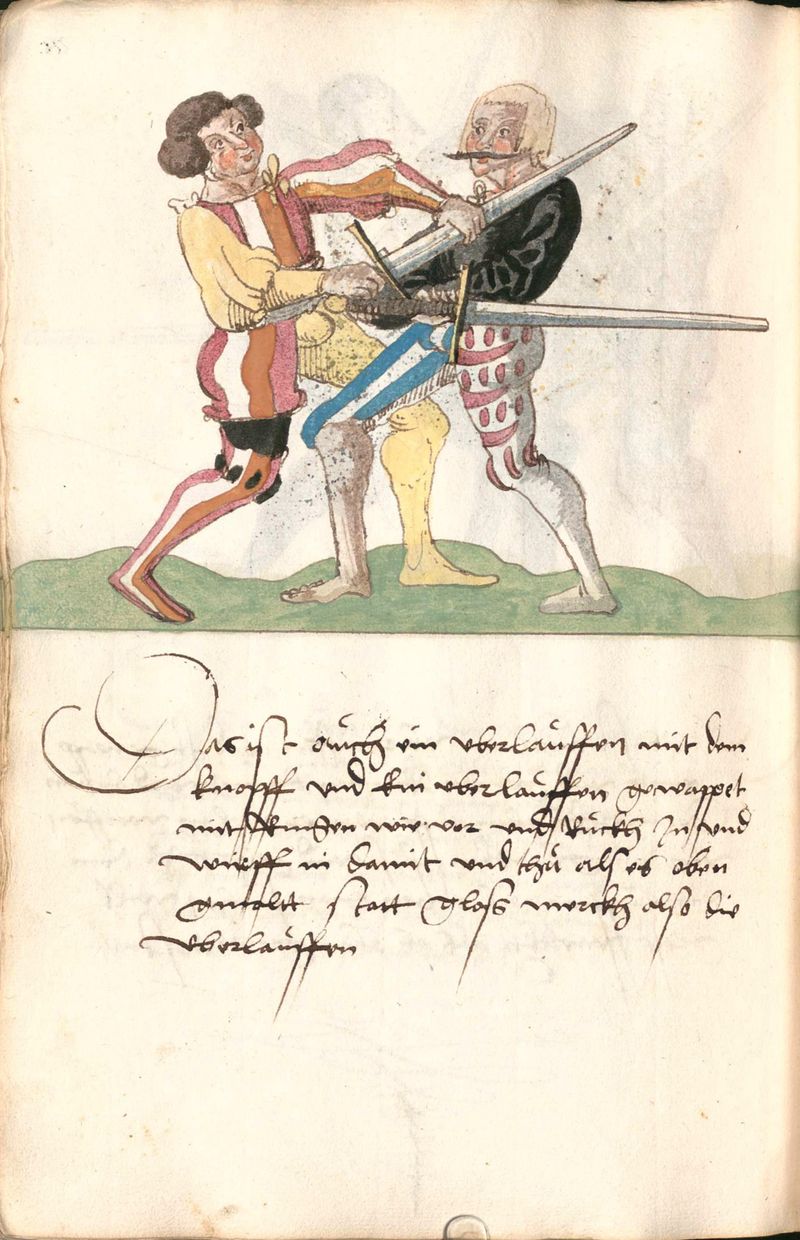 Das ist auch ein uberlauffen mit dem
knopff und ein uberlauffen gewappet
mit Ringen wie vor und Ruckh In und
wirff in damit und thu als es oben
gmaltt statt gloss merckh also die
uberlauffen